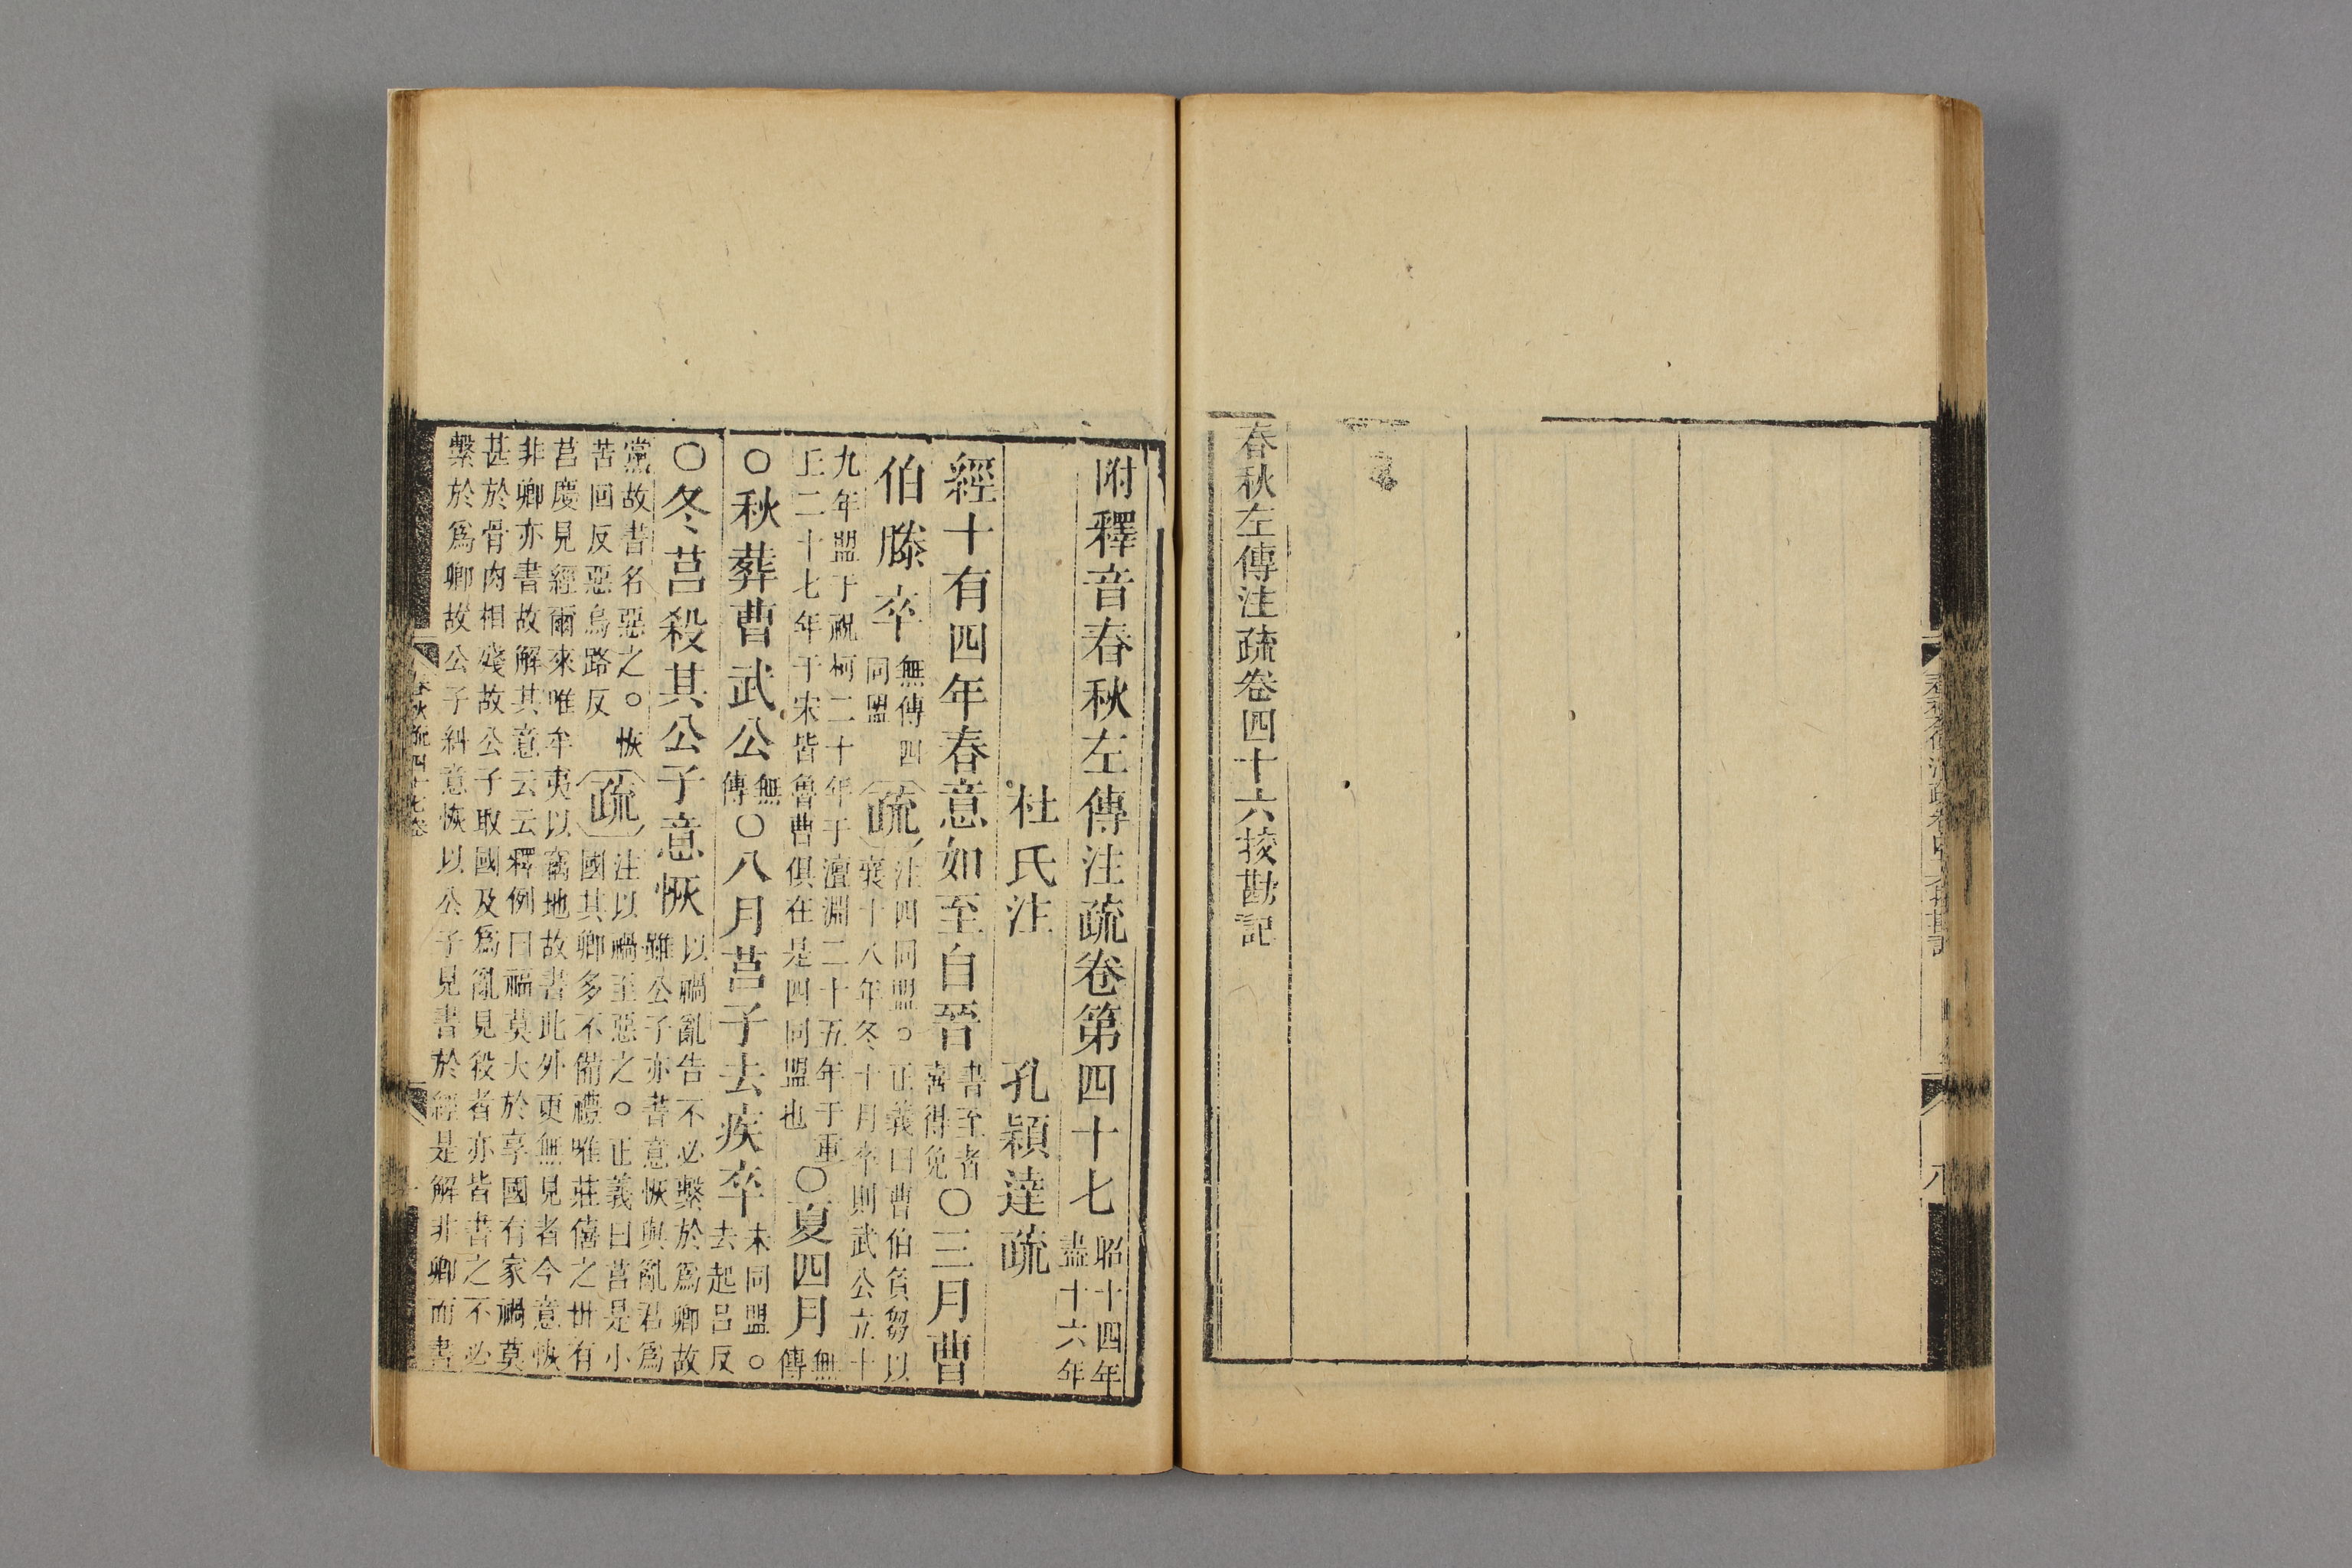 春秋左傳注疏卷四十六挍勘記
附釋音春秋左傳注疏卷第四十七
昭十四年
盡十六年
杜氏注　孔穎達疏
經十有四年春意如至自晉
書至者
喜得免
○三月曹
伯滕卒
無傳四
同盟
疏
注四同盟○正義曰曹伯負芻以
襄十八年冬十月卒則武公立十
九年盟于祝柯二十年于澶淵二十五年于重
上二十七年于宋皆魯曹俱在是四同盟也
○夏四月
無
傳
○秋葬曹武公
無
傳
○八月莒子去疾卒
未同盟○
去起呂反
○冬莒殺其公子意恢
以禍亂告不必繫於爲卿故
雖公子亦書意恢與亂君爲
黨故書名惡之○恢
苦回反惡烏路反
疏
注以禍至惡之○正義曰莒是小
國其卿多不備禮唯莊僖之世有
莒慶見經爾來唯牟夷以竊地故書此外更無見者今意恢
非卿亦書故解其意云云釋例曰福莫大於享國有家禍莫
甚於骨肉相殘故公子取國及爲亂見殺者亦皆書之不必
繫於爲卿故公子糾意恢以公子見書於經是解非卿而書